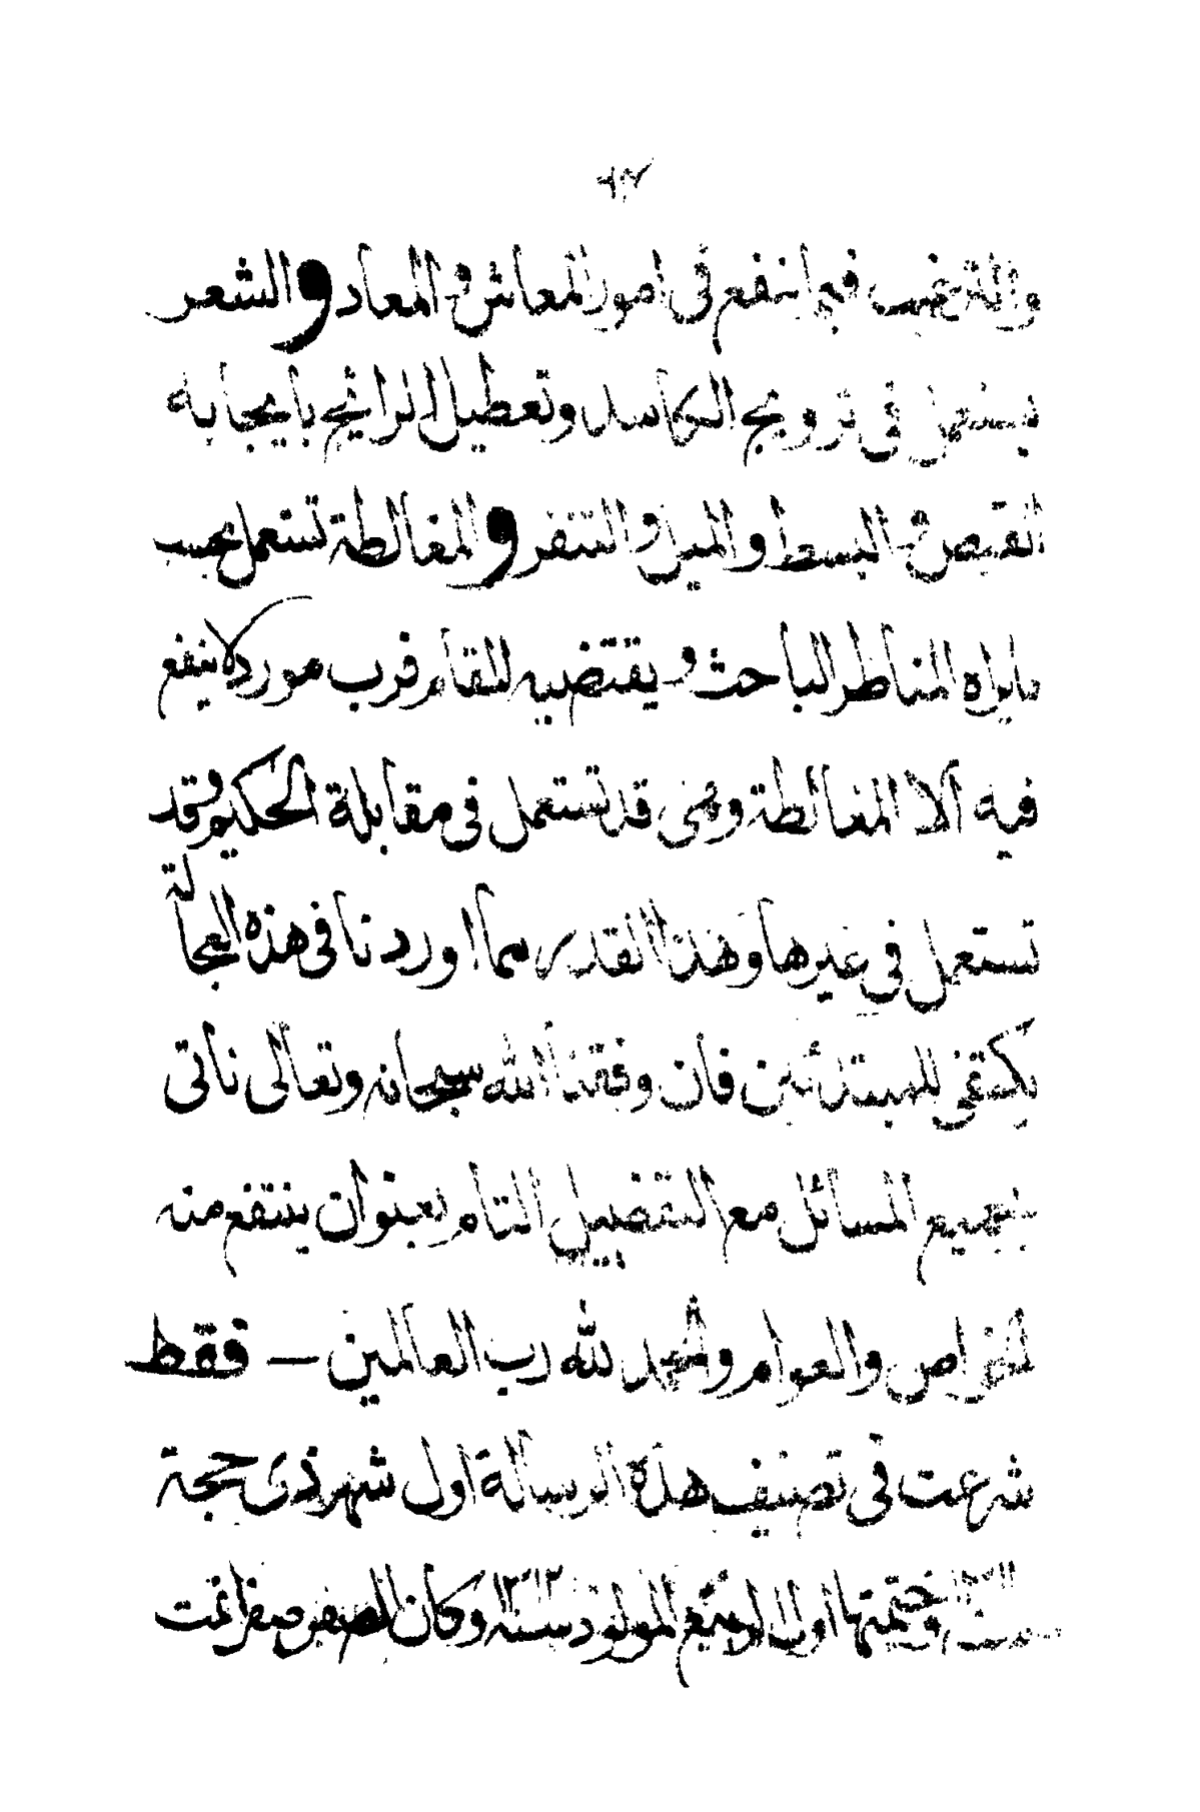 والترغيب فيما ينفع فى امور المعاش و المعاد و الشعر
يستعمل فى ترويج الكاسد وتعطيل الرائج بايجابه
القبض و البسط و الميل و التنفر و المغالطة تستعمل بحسب
مايراه المناظر الباحث و يقتضيه المقام فرب مورد لاينفع
فيه الا المغالطة وهى قد تستعمل فى مقابلة الحكيم وقد
تستعمل فى غيرها وهذا القدر مما اوردنا فى هذه العجالة
يكتفى للمبتدئين فان وفقنا الله سبحانه وتعالى ناتى
بجميع المسائل مع التفصيل التام بعنوان ينتفع منه
الخواص والعوام والحمد لله رب العالمين — فقط
شرعت فى تصنيف هذه الرسالة اول شهر ذى حجة
وختمتها اول الربيع المولود سنة ١٣١٢ وكان الصفر صفرا تمت